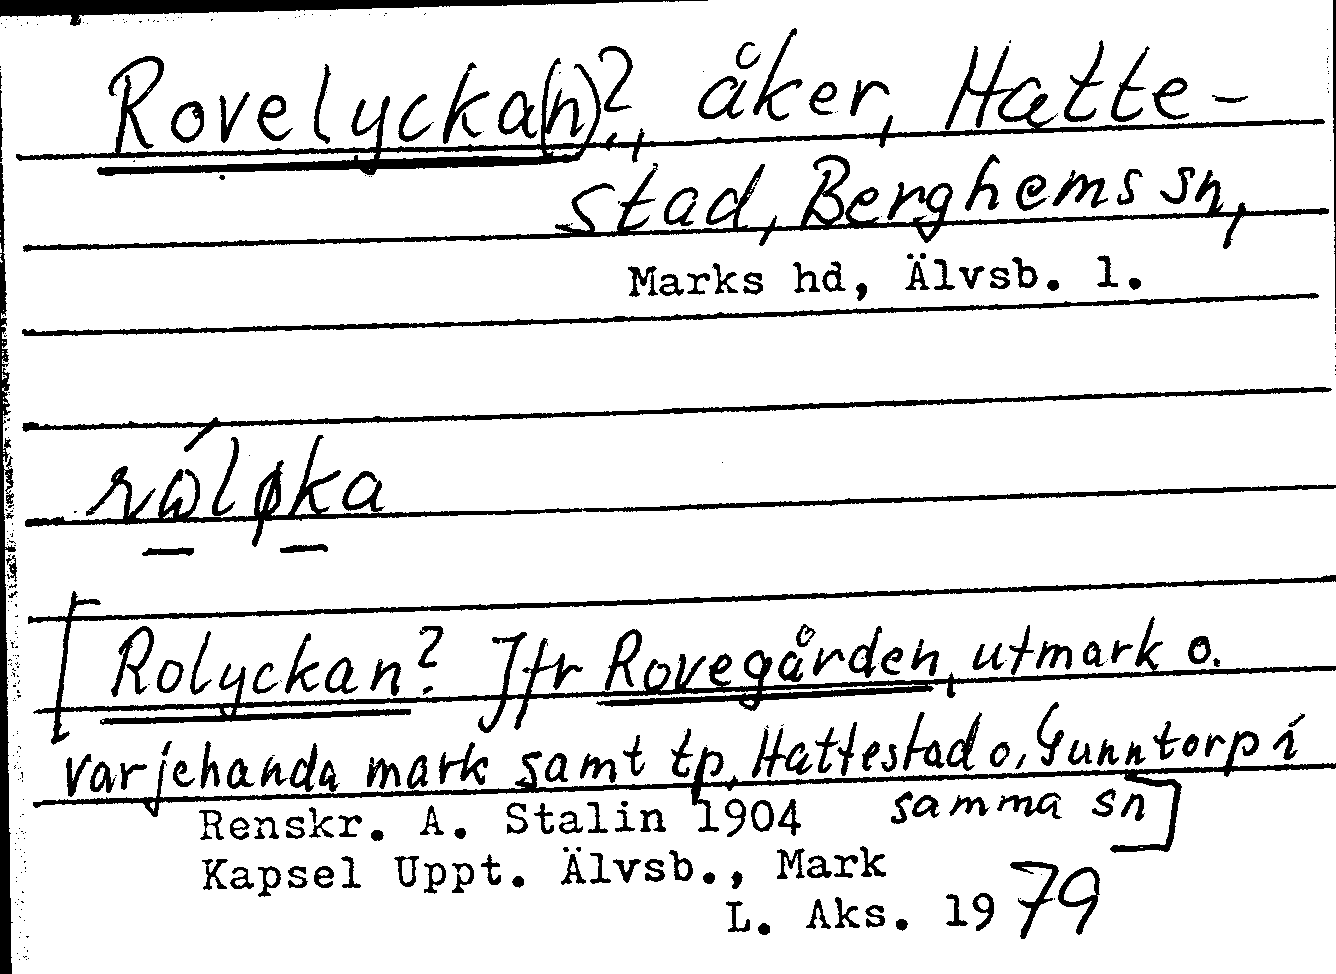 Rovelycka(n)?, åker, Hatte-
stad, Berghems sn,
Marks hd, Älvsb. l.
[Rolyckan? Jfr Rovegården, utmark o.
varjehanda mark samt tp, Hattestad o. Gunntorp i
samma sn]
Renskr. A. Stalin 1904
Kapsel Uppt. Älvsb., Mark
L. Aks. 1979